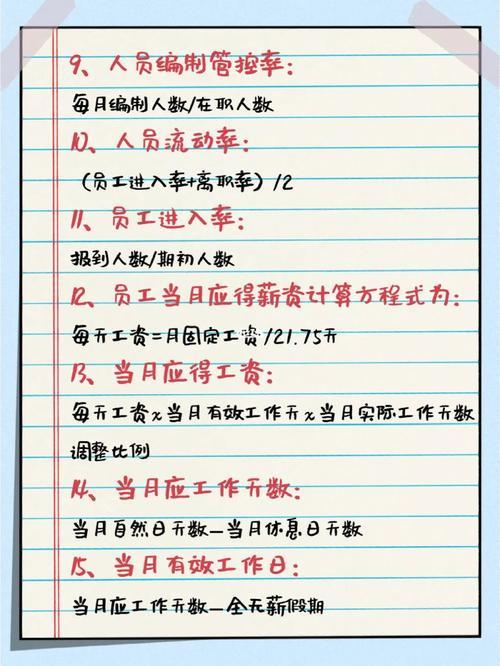 9、人员编制管控率:
每月编制人数/在职人数
10、人员流动率:
(员工进入率+离职率)/2
11、员工进入率:
报到人数/期初人数
12、员工当月应得薪资计算方程式为:
每天工资=月固定工资/21.75天
13、当月应得工资:
每天工资x当月有效工作天x当月实际工作天数
调整比例
14、当月应工作天数:
当月自然日天数—当月休息日天数
15、当月有效工作日:
当月应工作天数—全无薪假期